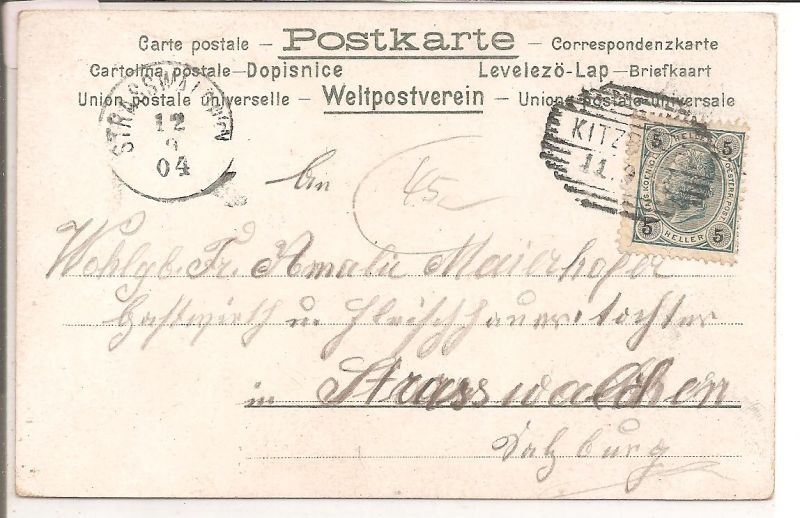 Carte postale – Postkarte – Correspondenzkarte
Cartolina postale – Dopisnice Levelezö-Lap – Briefkaart
Union postale universelle – Weltpostverein – Union postale universelle
STRASSWALCHEN
12
9
04
KITZB
11.9
5 5
5 HELLER 5
An
45
Wohlgb. Fr. Amalie Maierhofer
Gastwirth u. Fleischhauerstochter
in Strasswalchen
Salzburg